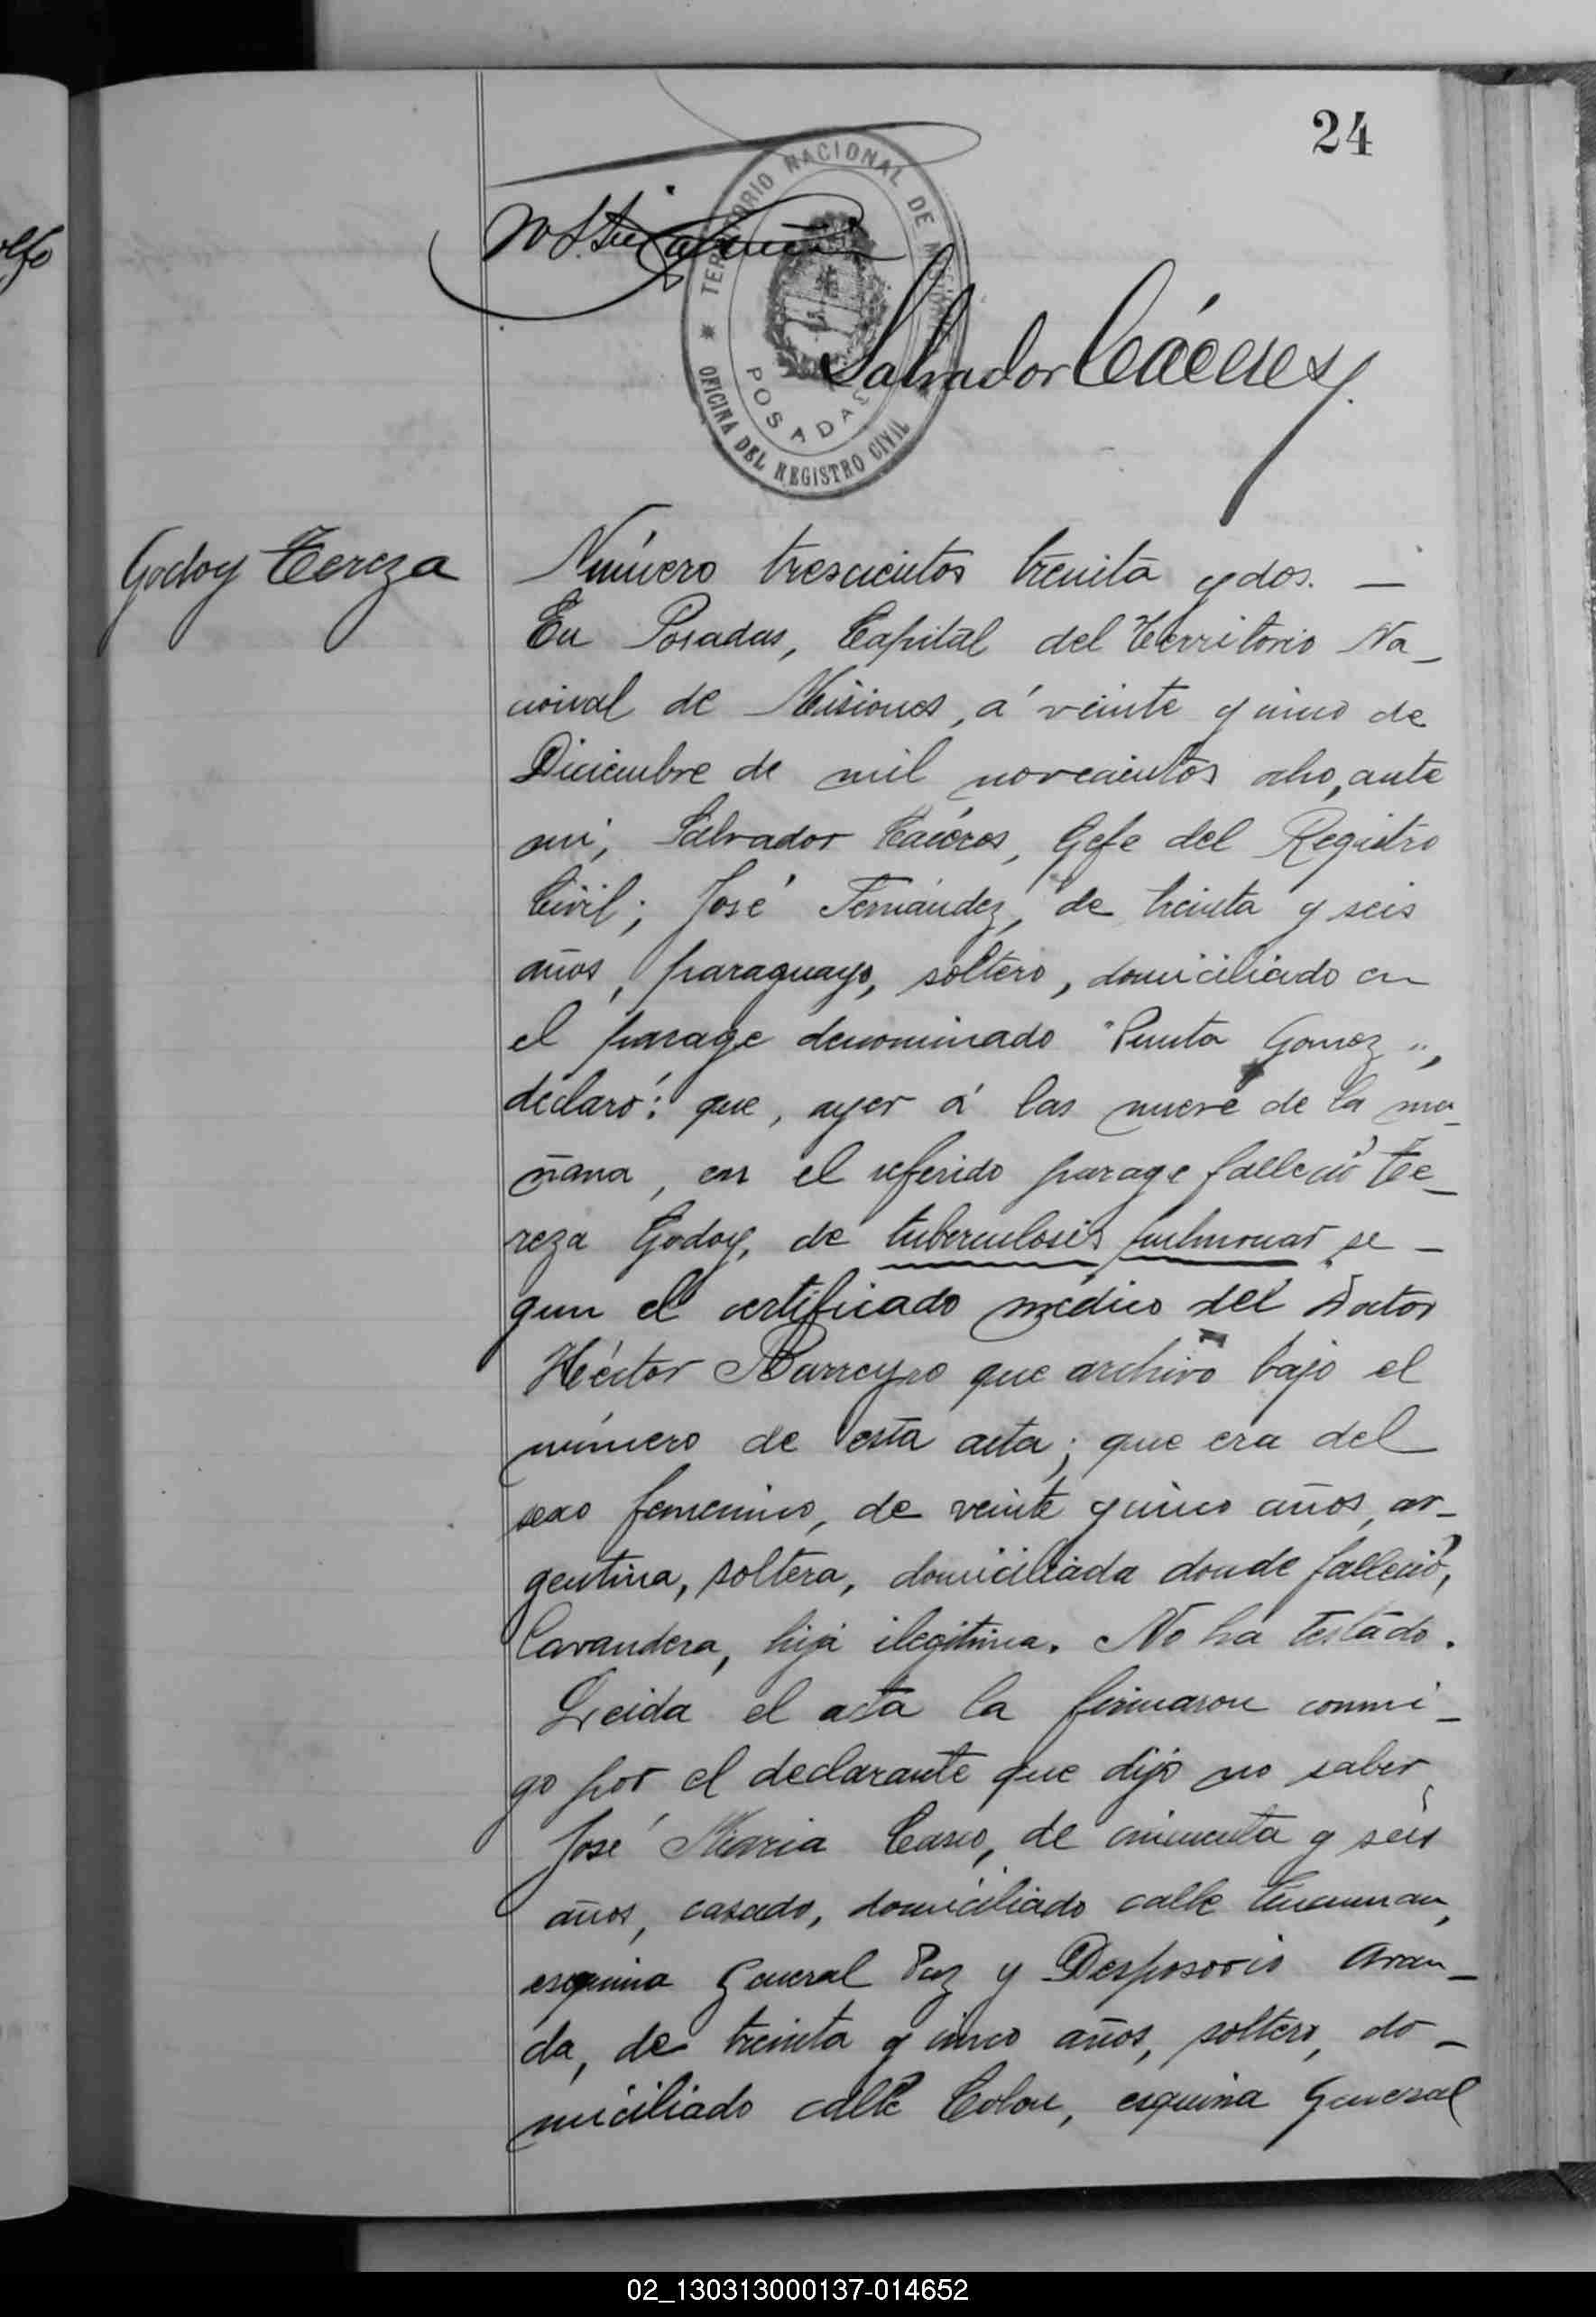 24
TERRITORIO NACIONAL DE MISIONES
POSADAS
OFICINA DEL REGISTRO CIVIL
Salvador Cáceres
Godoy Tereza
Número trescientos treinta y dos. —
En Posadas, Capital del Territorio Na_
cional de Misiones, á veinte y cinco de
Diciembre de mil novecientos ocho, ante
mi, Salvador Cáceres, Gefe del Registro
Civil; José Fernández, de treinta y seis
años, paraguayo, soltero, domiciliado en
el parage denominado "Punta Gomez",
declaró: que, ayer á las nueve de la ma_
ñana, en el referido parage falleció Te_
reza Godoy, de tuberculosis pulmonar se_
gun el certificado médico del Doctor
Héctor Barreyro que archivo bajo el
número de esta acta; que era del
sexo femenino, de veinte y cinco años, ar_
gentina, soltera, domiciliada donde falleció,
lavandera, hija ilegitima. No ha testado.
Leida el acta la firmaron conmi_
go por el declarante que dijo no saber
José Maria Casco, de cincuenta y seis
años, casado, domiciliado calle Tucuman,
esquina General Paz y Desposorio Aran_
da, de treinta y cinco años, soltero, do_
miciliado calle Colon, esquina General
02_130313000137-014652